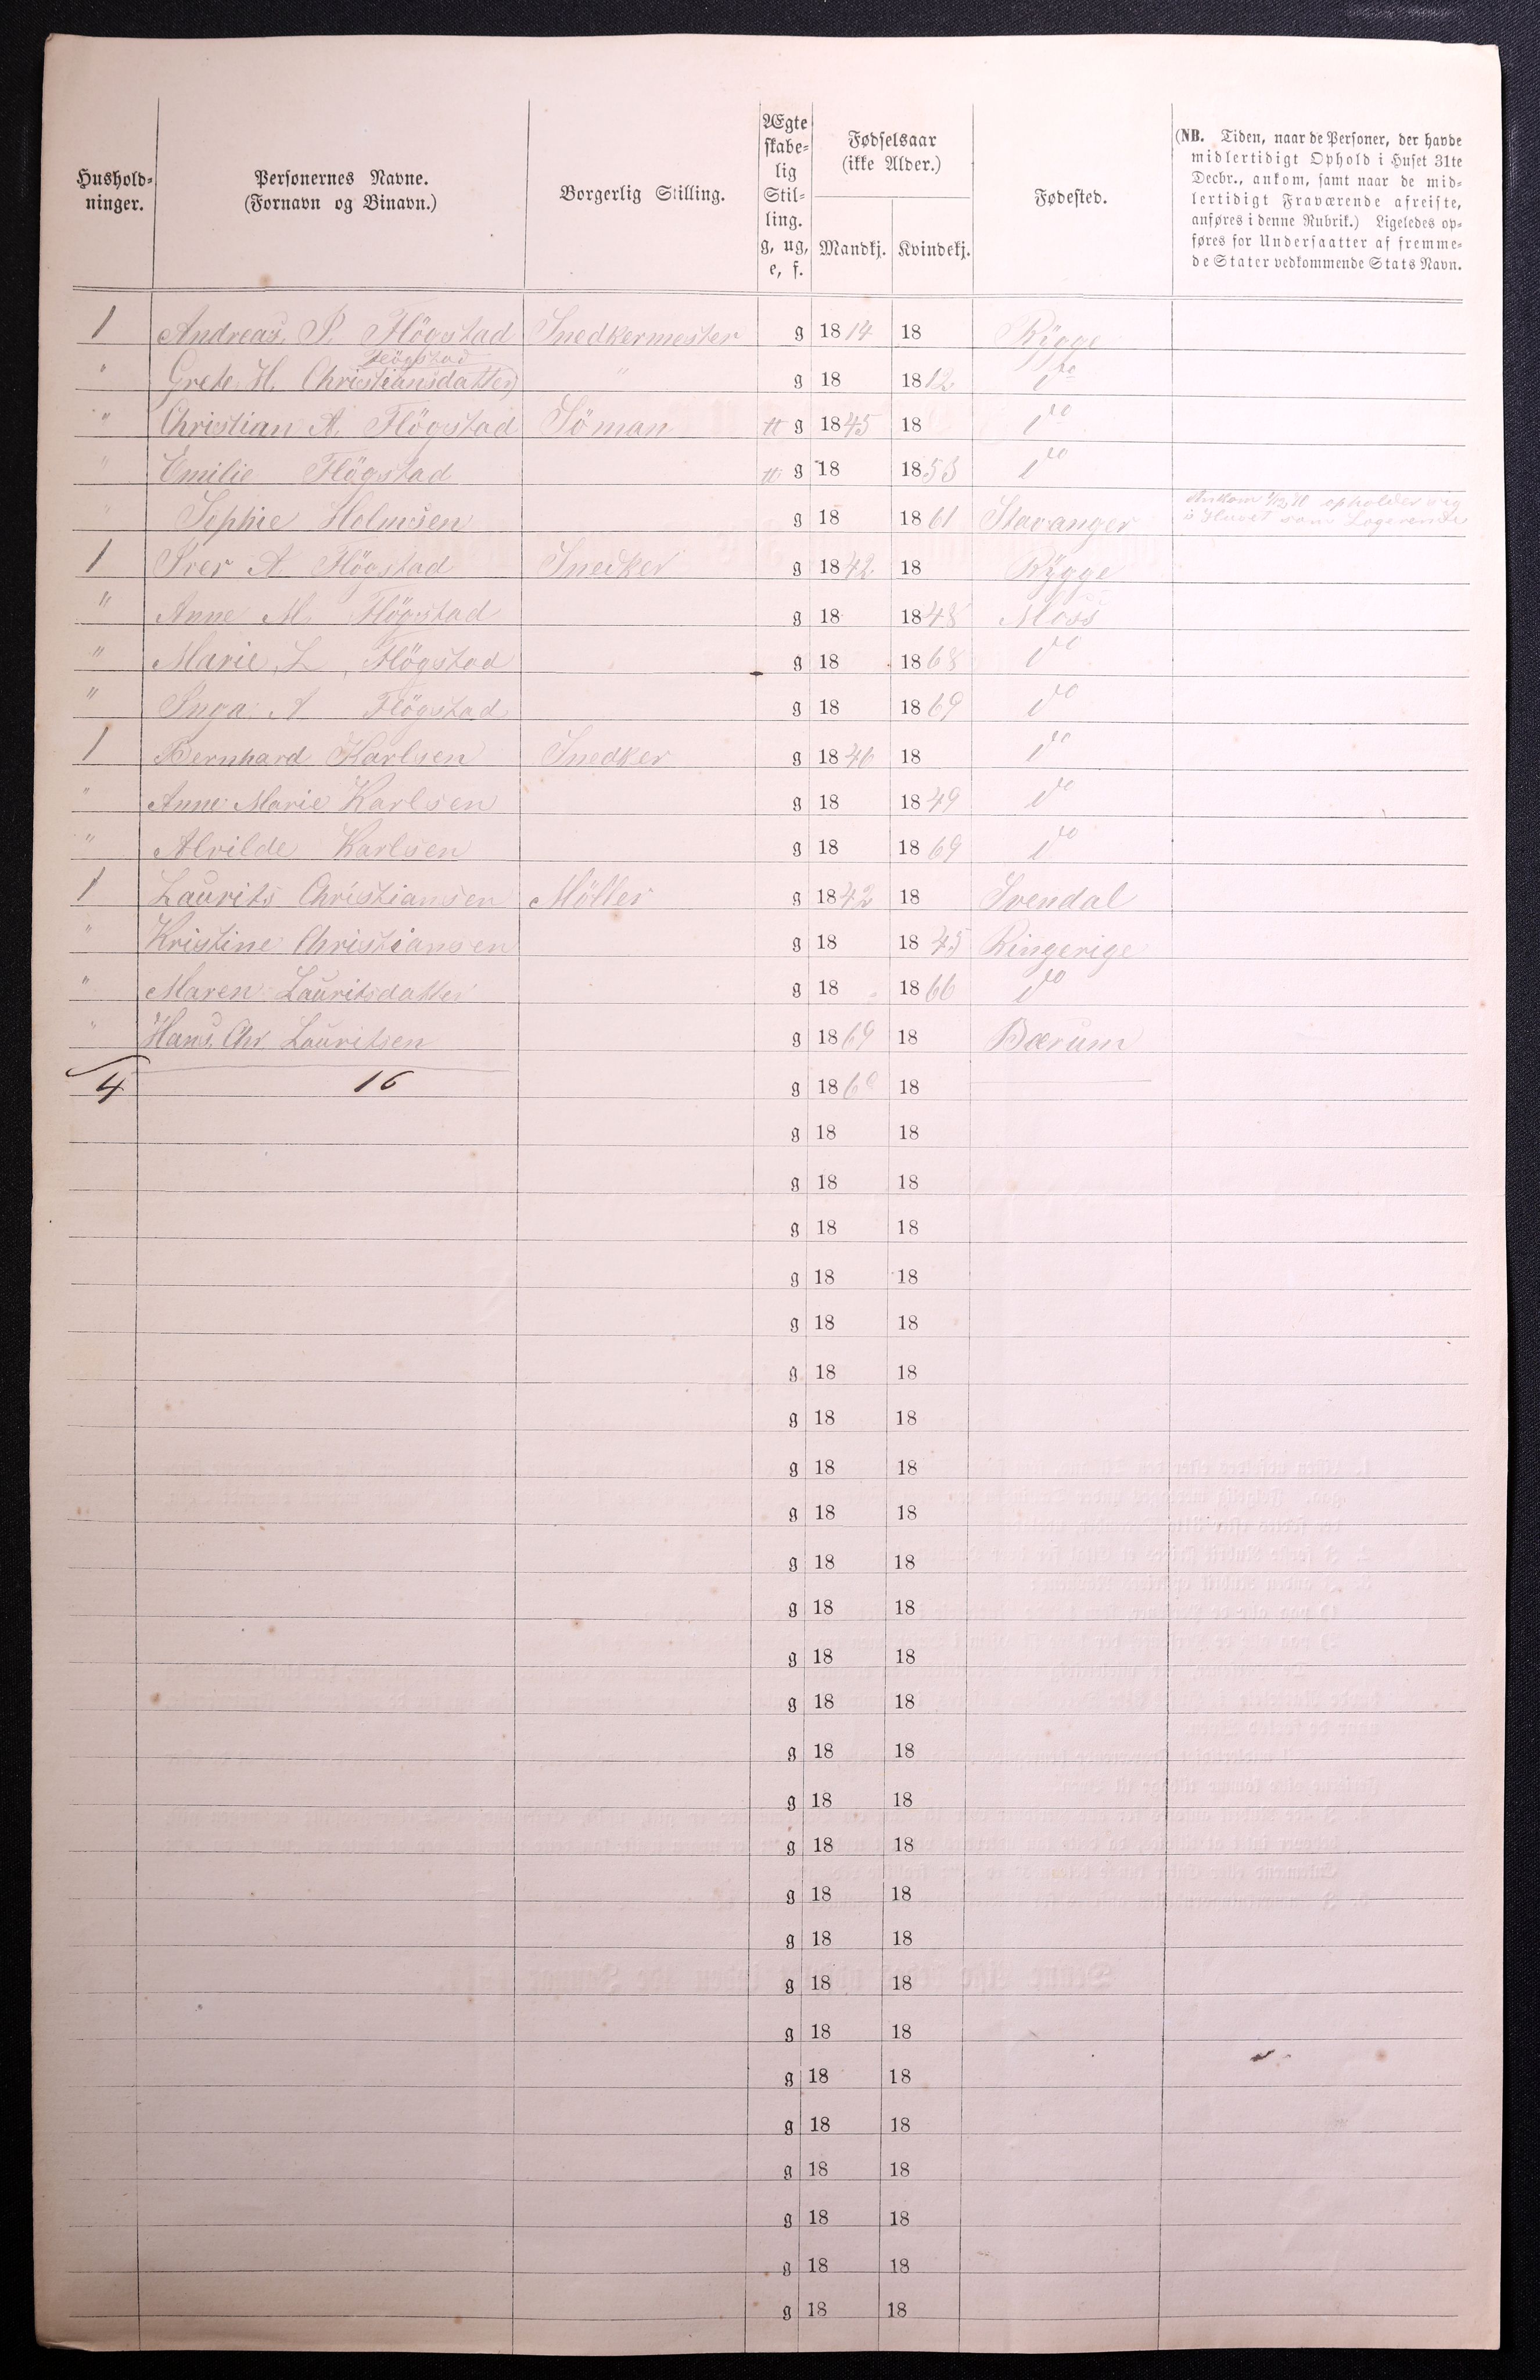 Hushold-
ninger.
Personernes Navne.
(Fornavn og Binavn.)
Borgerlig Stilling.
Ægte
skabe-
lig
Stil-
ling.
g, ug,
e, f.
Fødselsaar
(ikke Alder.)
Mandkj. Kvindekj.
Fødested.
(NB. Tiden, naar de Personer, der havde
midlertidigt Ophold i Huset 31te
Decbr., ankom, samt naar de mid-
lertidigt Fraværende afreiste,
anføres i denne Rubrik.) Ligeledes op-
føres for Undersaatter af fremme-
de Stater vedkommende Stats Navn.
1 Andreas P. Flögstad Snedkermester g 1814 18 Rygge
Flögstad
" Grete H. Christiansdatter " g 18 1812 do
" Christian A. Flögstad Söman g 1845 18 do
" Emilie Flögstad g 18 1853 do
" Sophie Holmsen g 18 1861 Stavanger Ankom opholder sig
i Huset som Logerende
1 Iver A Flögstad Snedker g 1842 18 Rygge
" Anne M. Flögstad g 18 1848 Moss
" Marie L. Flögstad g 18 1868 do
" Inga A Flögstad g 18 1869 do
1 Bernhard Karlsen Snedker g 1846 18 do
" Anne Marie Karlsen g 18 1849 do
" Alvilde Karlsen g 18 1869 do
1 Laurits Christiansen Möller g 1842 18 Svendal
" Kristine Christiansen g 18 1845 Ringerige
" Maren Lauritsdatter g 18 1866 do
" Hans Chr Lauritsen g 1869 18 Bærum
4 16 g 186 18
g 18 18
g 18 18
g 18 18
g 18 18
g 18 18
g 18 18
g 18 18
g 18 18
g 18 18
g 18 18
g 18 18
g 18 18
g 18 18
g 18 18
g 18 18
g 18 18
g 18 18
g 18 18
g 18 18
g 18 18
g 18 18
g 18 18
g 18 18
g 18 18
g 18 18
g 18 18